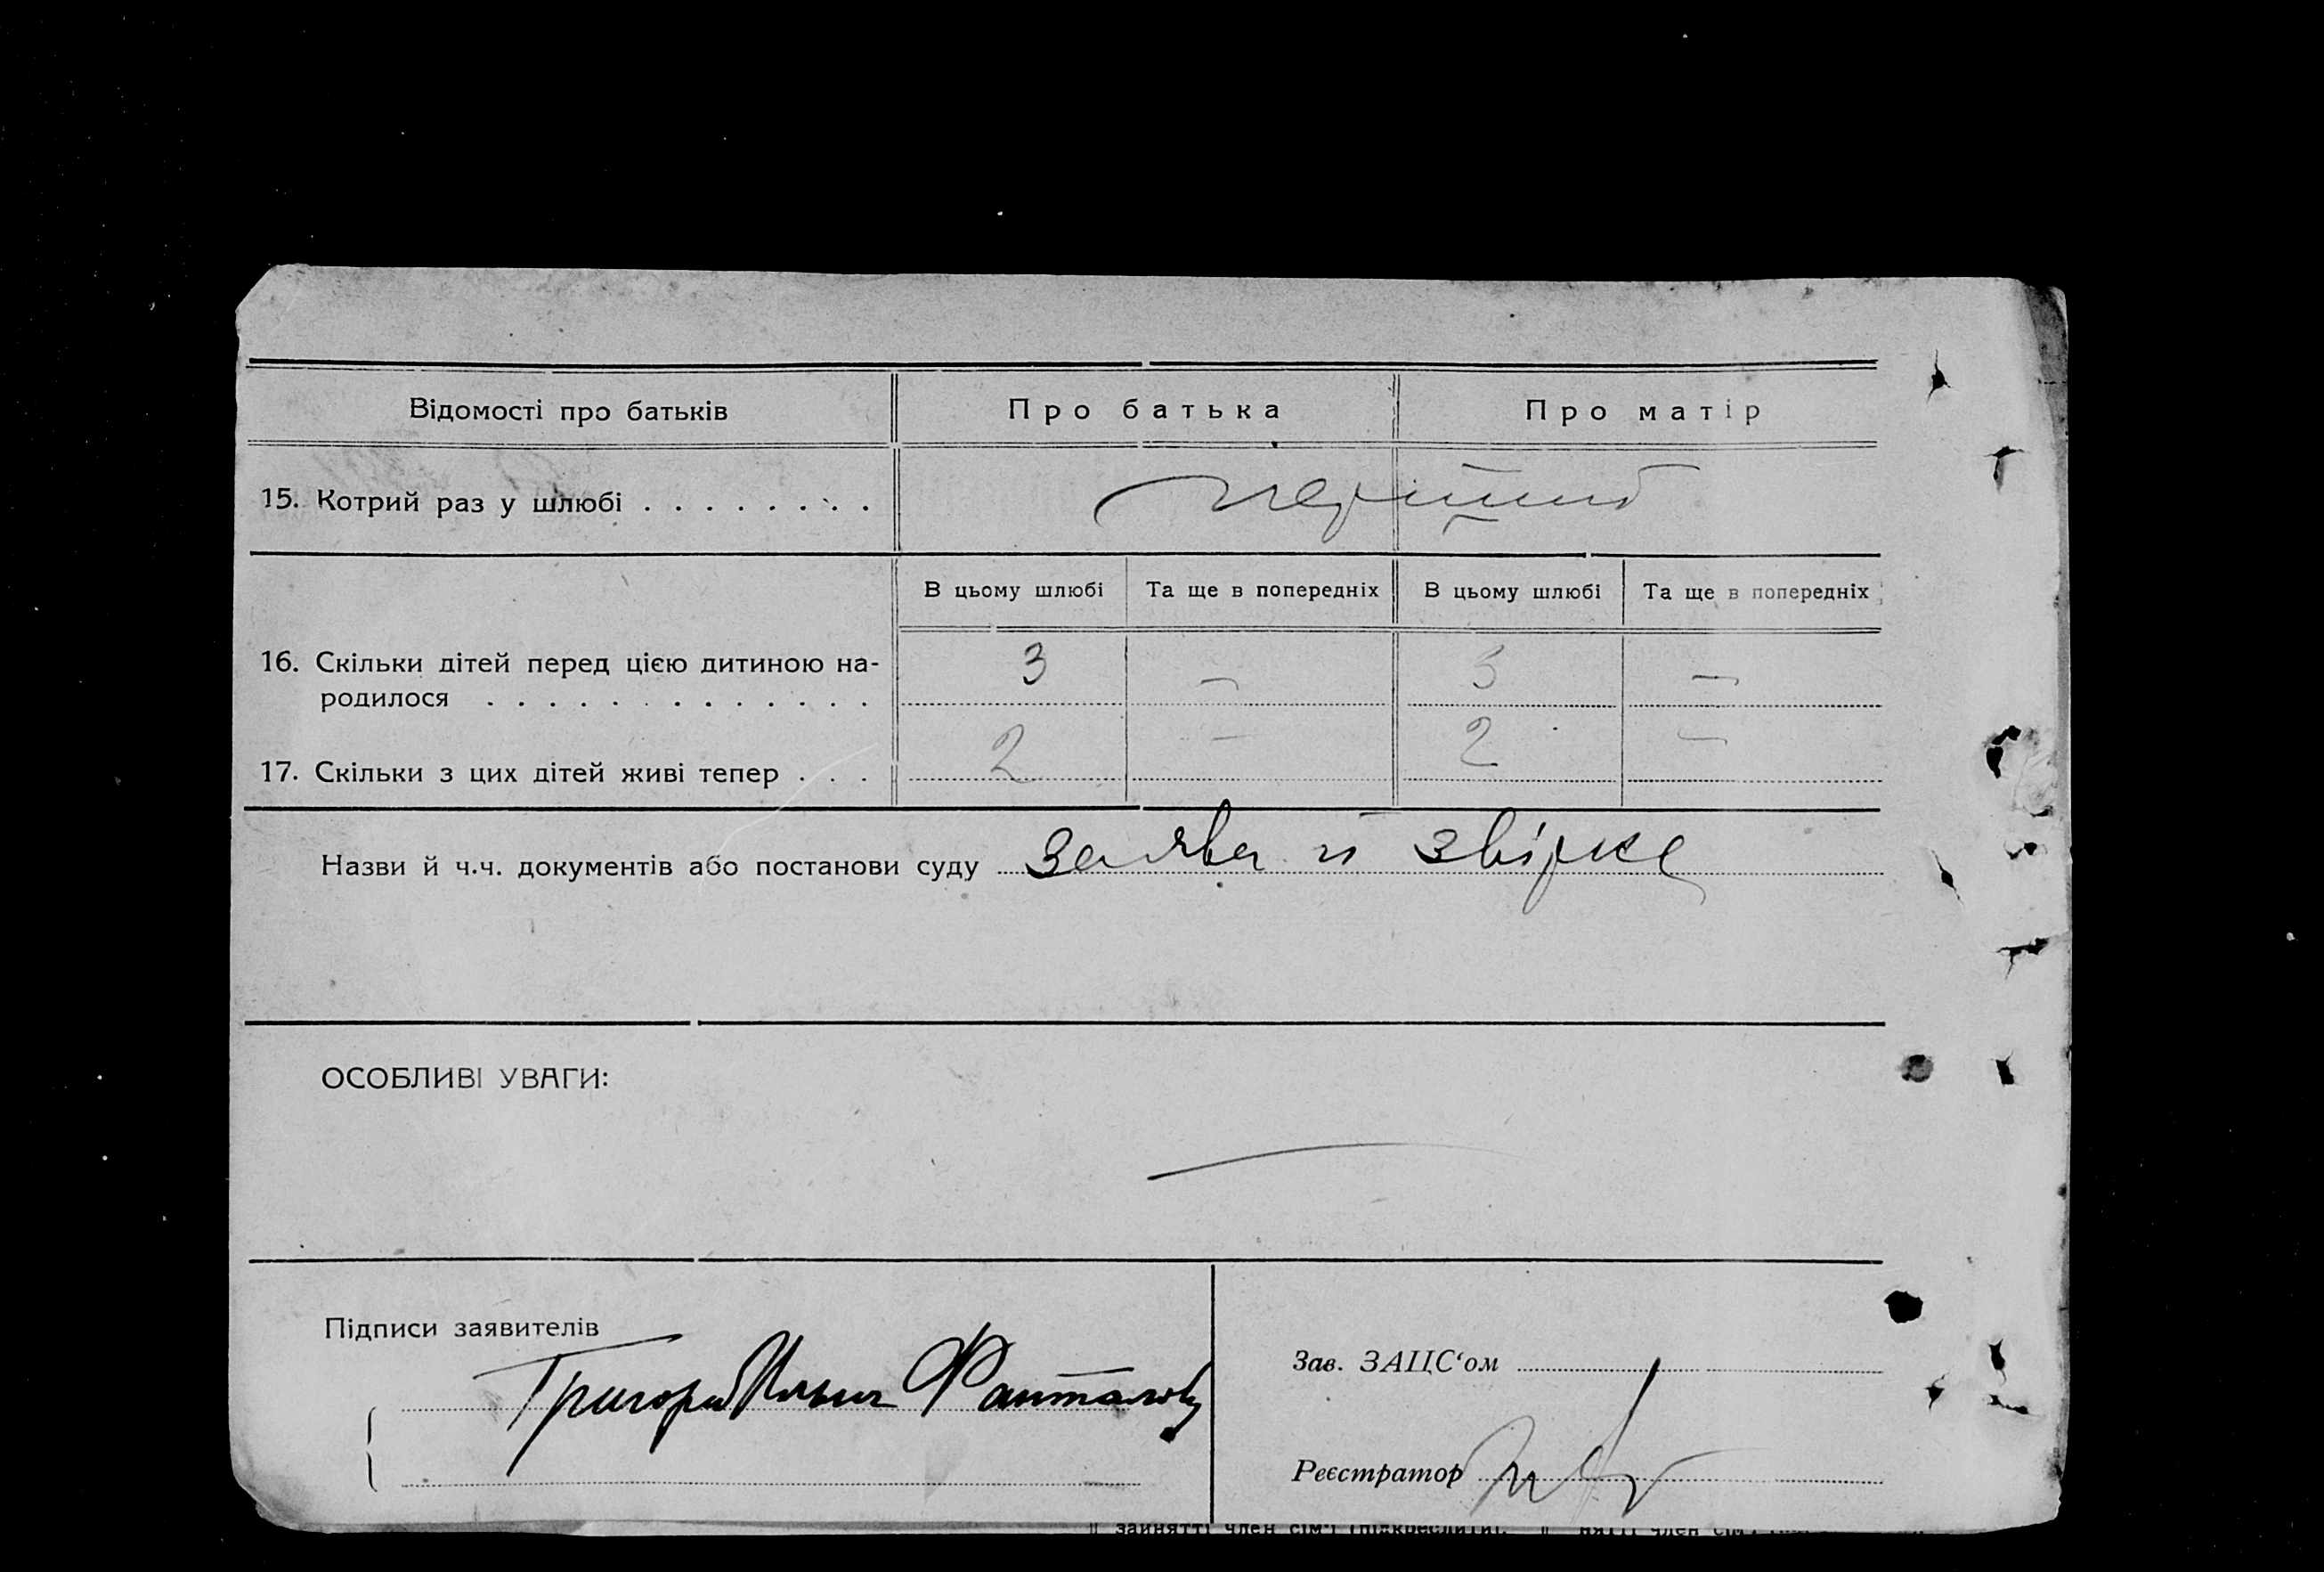 Відомості про батьків Про батька Про матір
15. Котрий раз у шлюбі . . . . . . . . перший
В цьому шлюбі Та ще в попередніх В цьому шлюбі Та ще в попередніх
16. Скільки дітей перед цією дитиною на- 3 — 3 —
родилося . . . . . . . . . . . . .
17. Скільки з цих дітей живі тепер . . . 2 — 2 —
Назви й ч.ч. документів або постанови суду заява й звірка
ОСОБЛИВІ УВАГИ:
Підписи заявителів
Григорий Фанталов
Зав. ЗАЦС‘ом
Реєстратор
зайнятті член сім'ї (підкреслити).